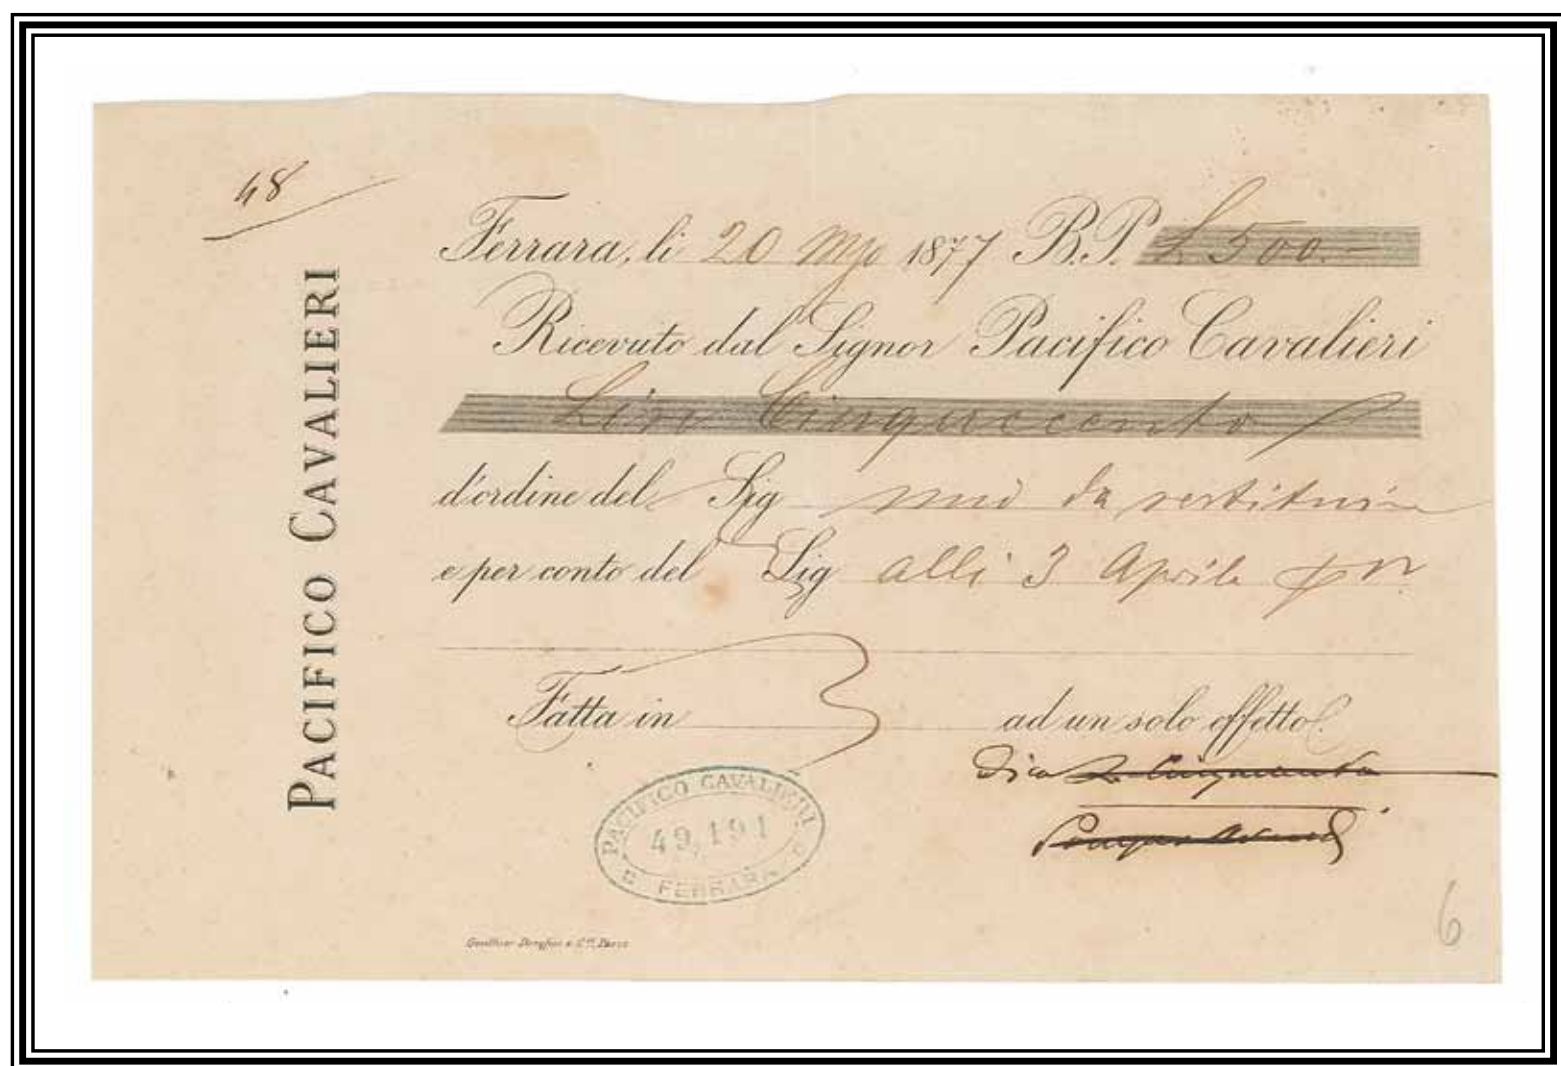 48
PACIFICO CAVALIERI
Ferrara, li 20 Mzo 1877 B.P. £ 500.-
Ricevuto dal Signor Pacifico Cavalieri
Lire Cinquecento
d'ordine del Sig mio da restituire
e per conto del Sig alli 3 Aprile
Fatta in ad un solo effetto
Dico
PACIFICO CAVALIERI
49,191
FERRARA
6